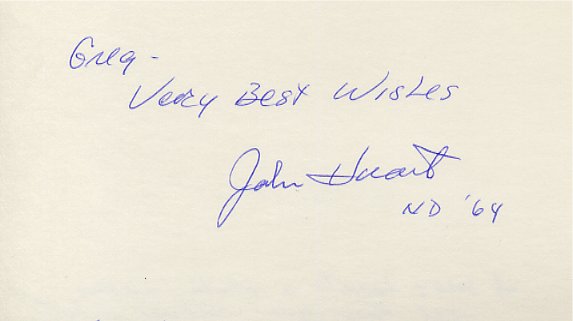 Greg -
Very Best Wishes
John Huarte
ND '64